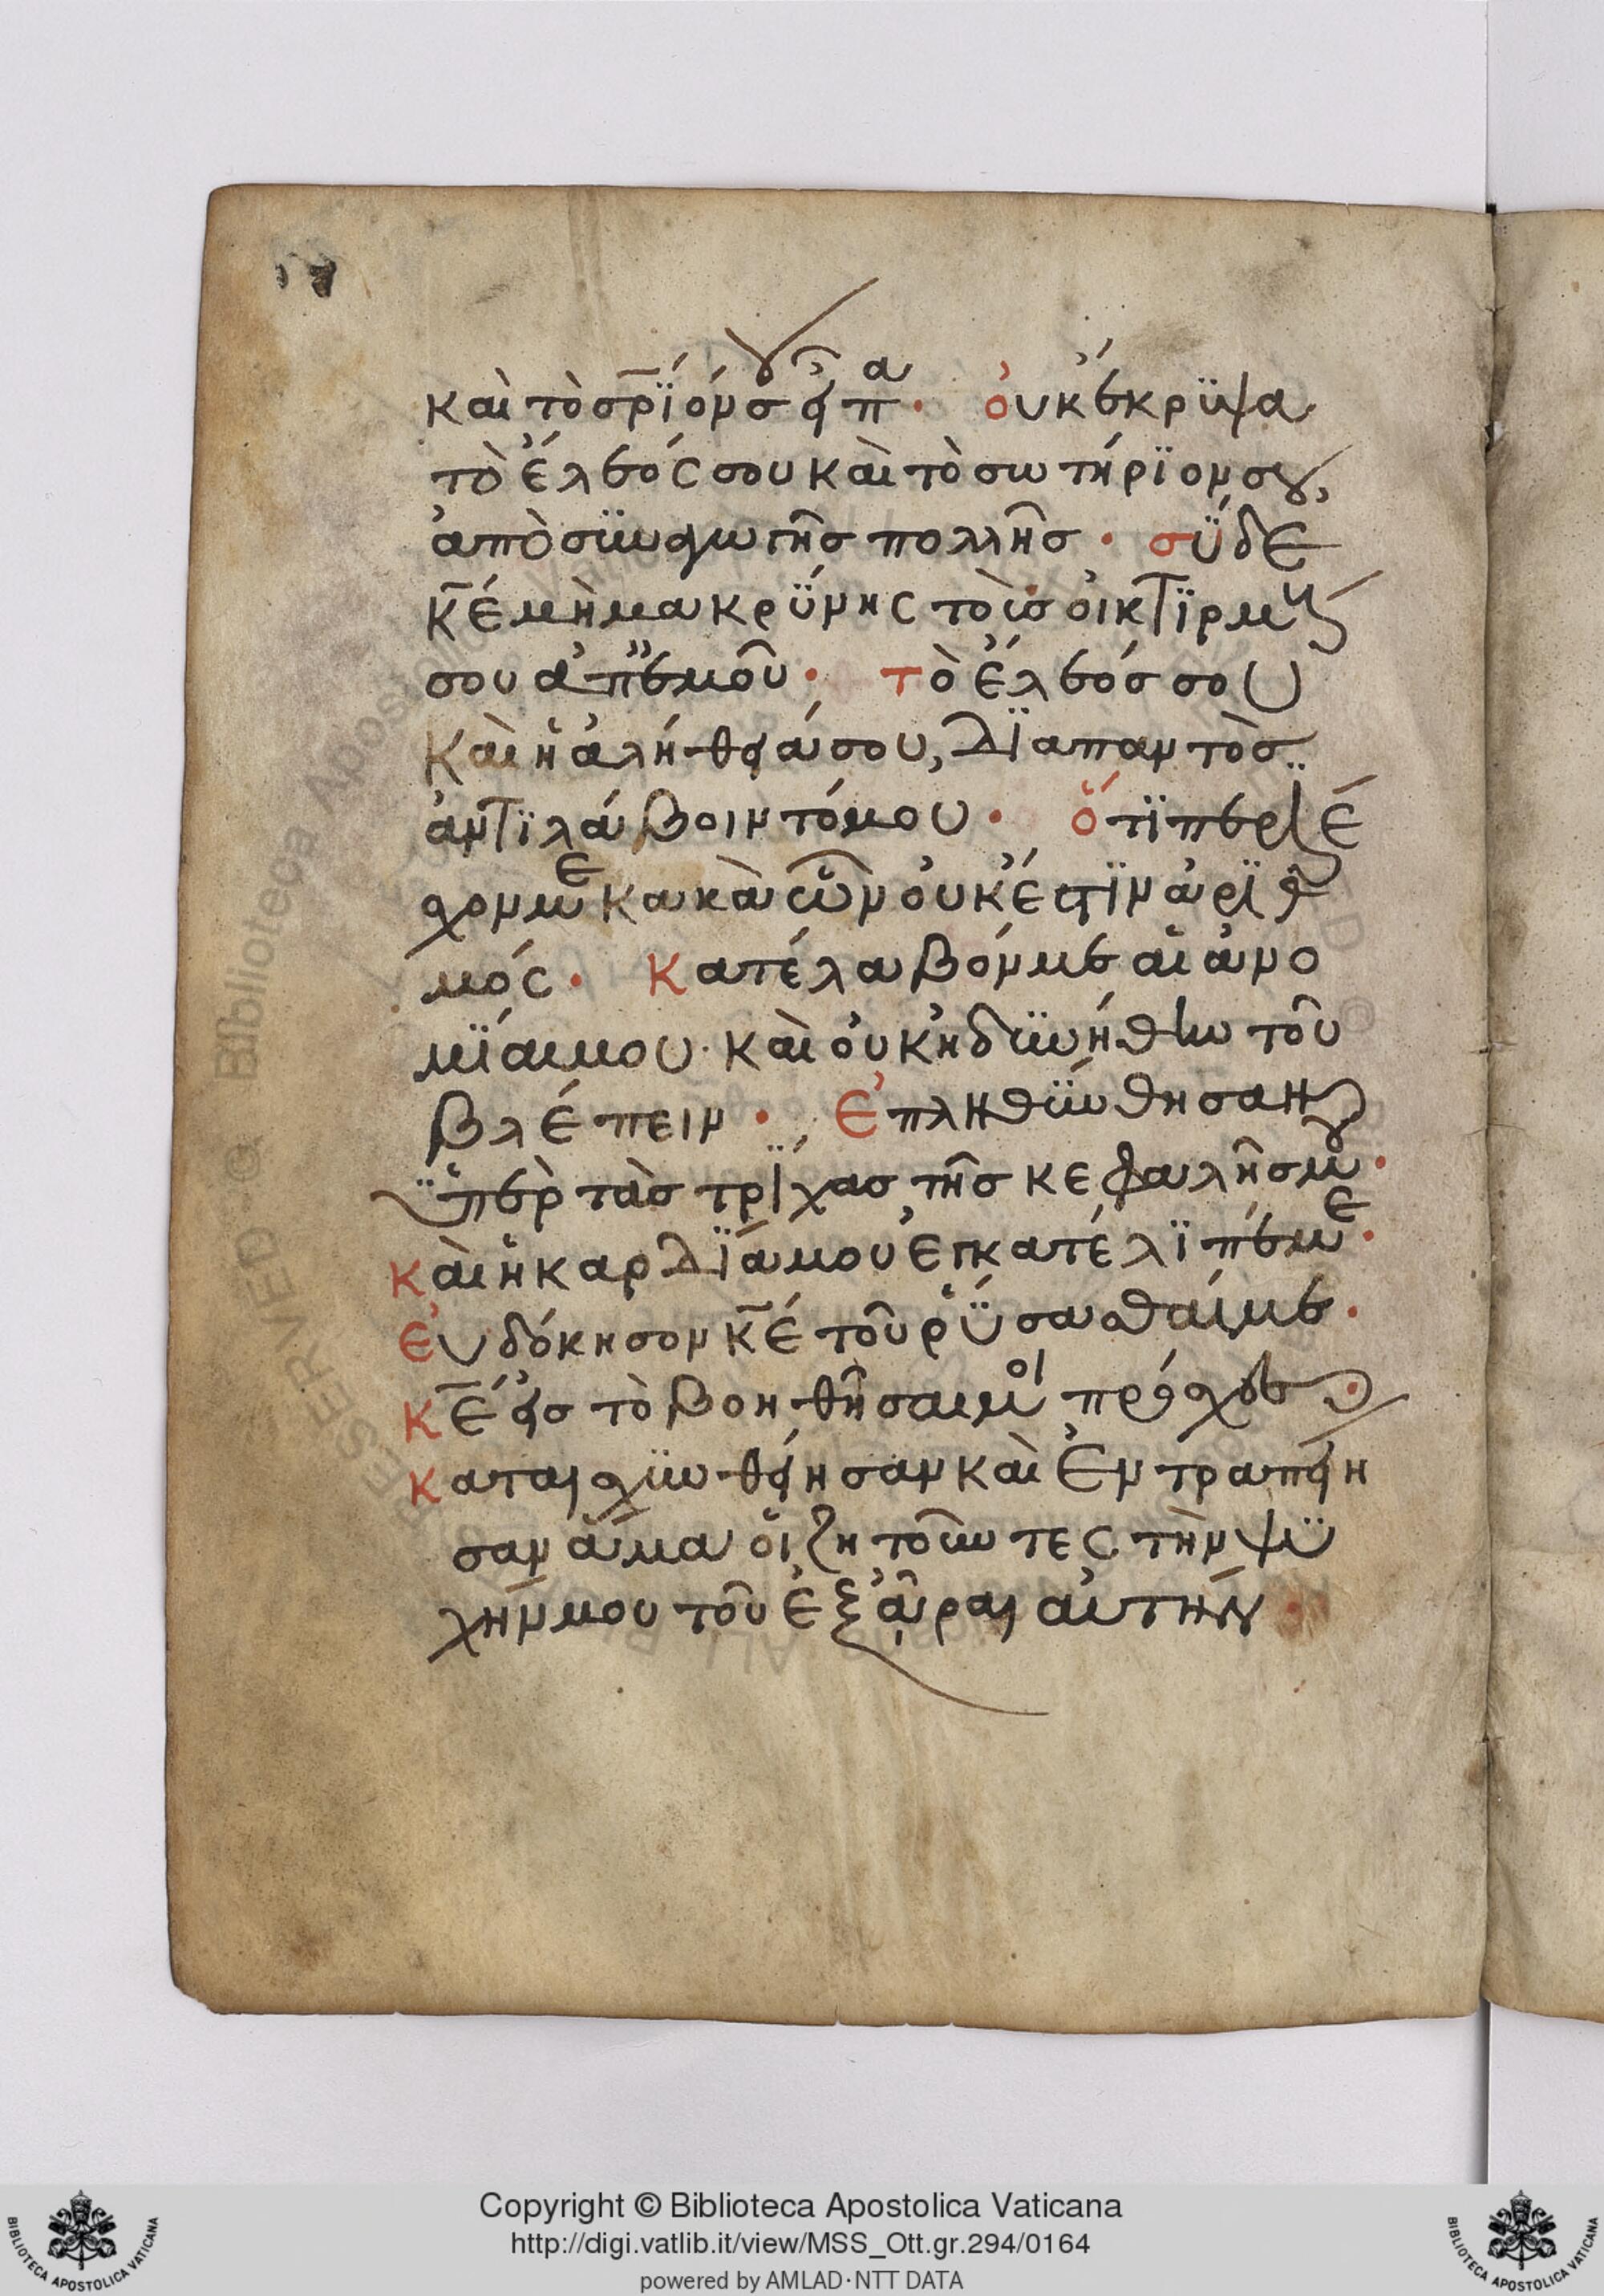 καὶ τὸ σρ̅ϊόν σου εἶπα· οὐκ ἔκρϋψα
τὸ ἔλεός σου καὶ τὸ σωτήρϊον σου,
ἀπὸ σϋναγωγῆσ πολλῆσ· σΰ δὲ
κ̅έ μὴ μακρΰνης τοὺσ οἰκτϊρμούς
σου ἀπ' ἐμοῦ· τὸ ἔλεόσ σου
καὶ ἡ ἀλήθειά σου, δϊαπαντὸσ
ἀντϊλάβοιντό μου· ὅτϊ περϊέ
σχον με κακὰ ὧν οὐκ ἔστϊν ἀρϊθ
μός· Κατέλαβόν με αἱ ἀνο
μΐαι μου· καὶ οὐκ ἠδϋνήθην τοῦ
βλέπειν· Ἐπληθΰνθησαν
ϋ̔πὲρ τὰσ τρΐχασ τῆσ κεφαλῆσ μου·
Καὶ ἡ καρδΐα μου ἐγκατέλϊπέ με·
Ἐυδόκησον κ̅έ τοῦ ῥΰσασθαί με·
Κ̅έ εἰσ τὸ βοηθῆσαι μοι πρόσχεσ·
Καταισχϋνθείησαν καὶ ἐντραπείη
σαν ἅμα οἱ ζητοῦντες τὴν ψϋ
χήν μου τοῦ ἐξᾶραι αὐτήν·
Copyright © Biblioteca Apostolica Vaticana
http://digi.vatlib.it/view/MSS_Ott.gr.294/0164
powered by AMLAD·NTT DATA
BIBLIOTECA APOSTOLICA VATICANA
BIBLIOTECA APOSTOLICA VATICANA